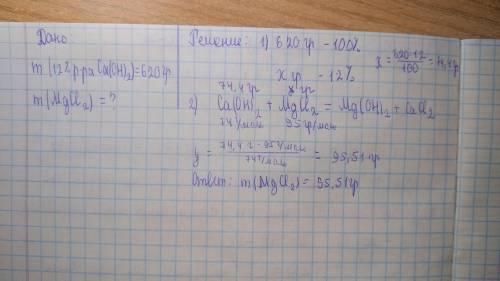 Дано
m(12% р-ра Ca(OH)₂)=620гр
m(MgCl₂) = ?
Решение: 1) 620гр - 100%
X гр - 12%
X = 620·12/100 = 74,4гр
74,4гр y гр
2) Ca(OH)₂ + MgCl₂ = Mg(OH)₂ + CaCl₂
74г/моль 95гр/моль
y = 74,4 г · 95г/моль / 74г/моль = 95,51гр
Ответ: m(MgCl₂) = 95,51гр